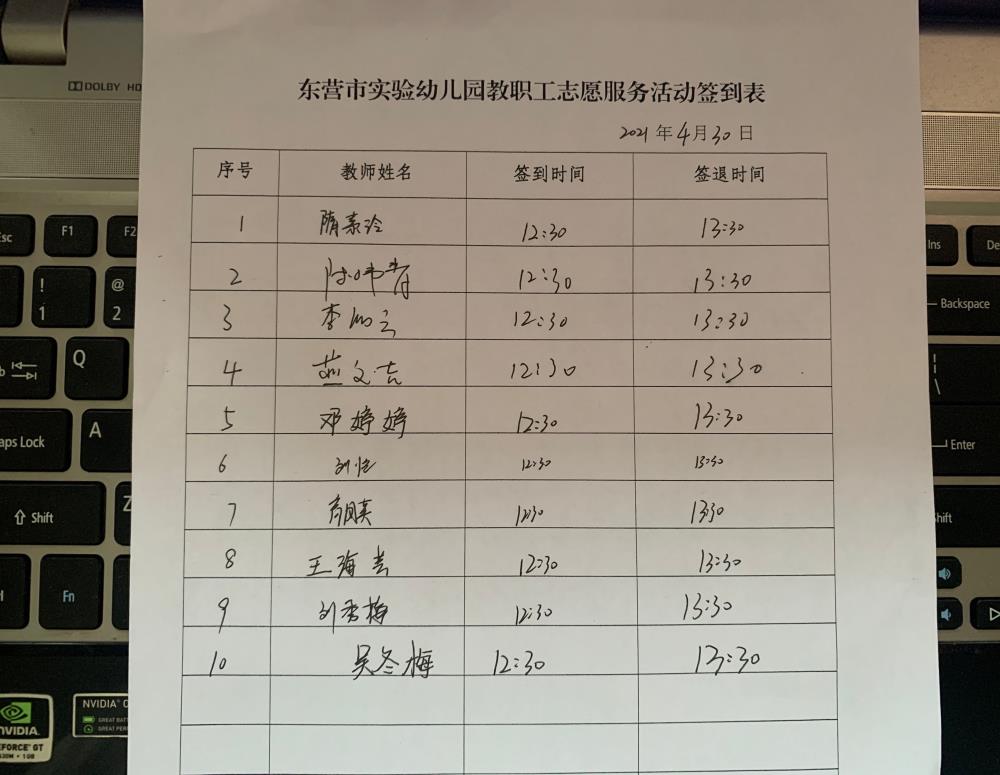 DOLBY HD
东营市实验幼儿园教职工志愿服务活动签到表
2021年4月30日
序号 教师姓名 签到时间 签退时间
1 隋素玲 12:30 13:30
2 12:30 13:30
3 李 12:30 13:30
4 燕文吉 12:30 13:30
5 邓婷婷 12:30 13:30
6 刘佳 12:30 13:30
7 12:30 13:30
8 王海芸 12:30 13:30
9 刘秀梅 12:30 13:30
10 吴冬梅 12:30 13:30
Esc F1 F2
! 1 @ 2
Q
Caps Lock A
Shift Z
Fn
Ins De
Backspace
| \
Enter
Shift
NVIDIA
GEFORCE GT
630M • 1GB
NVIDIA
GREAT BATT
GREAT PER